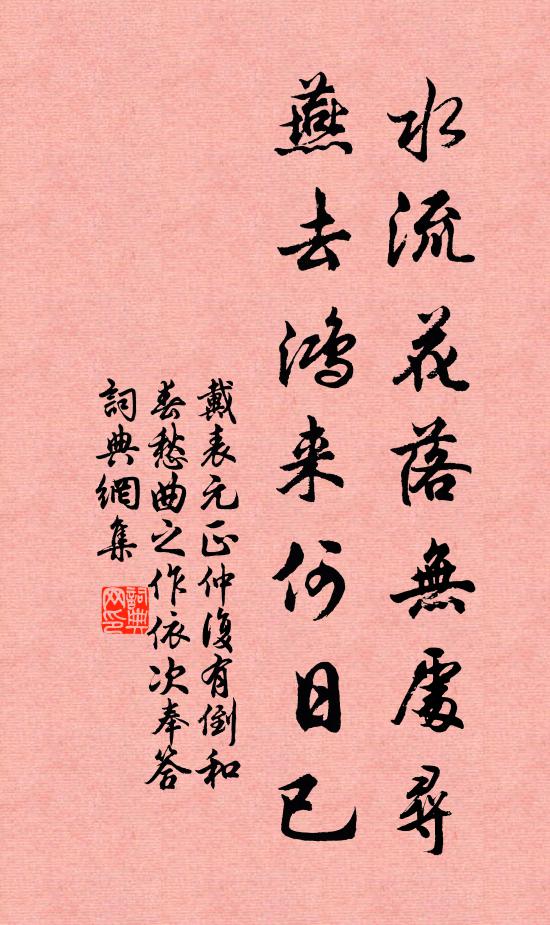 水流花落無處尋
燕去鴻来何日已
戴表元正仲復有倒和
春愁曲之作依次奉答
詞典網集
詞典网印